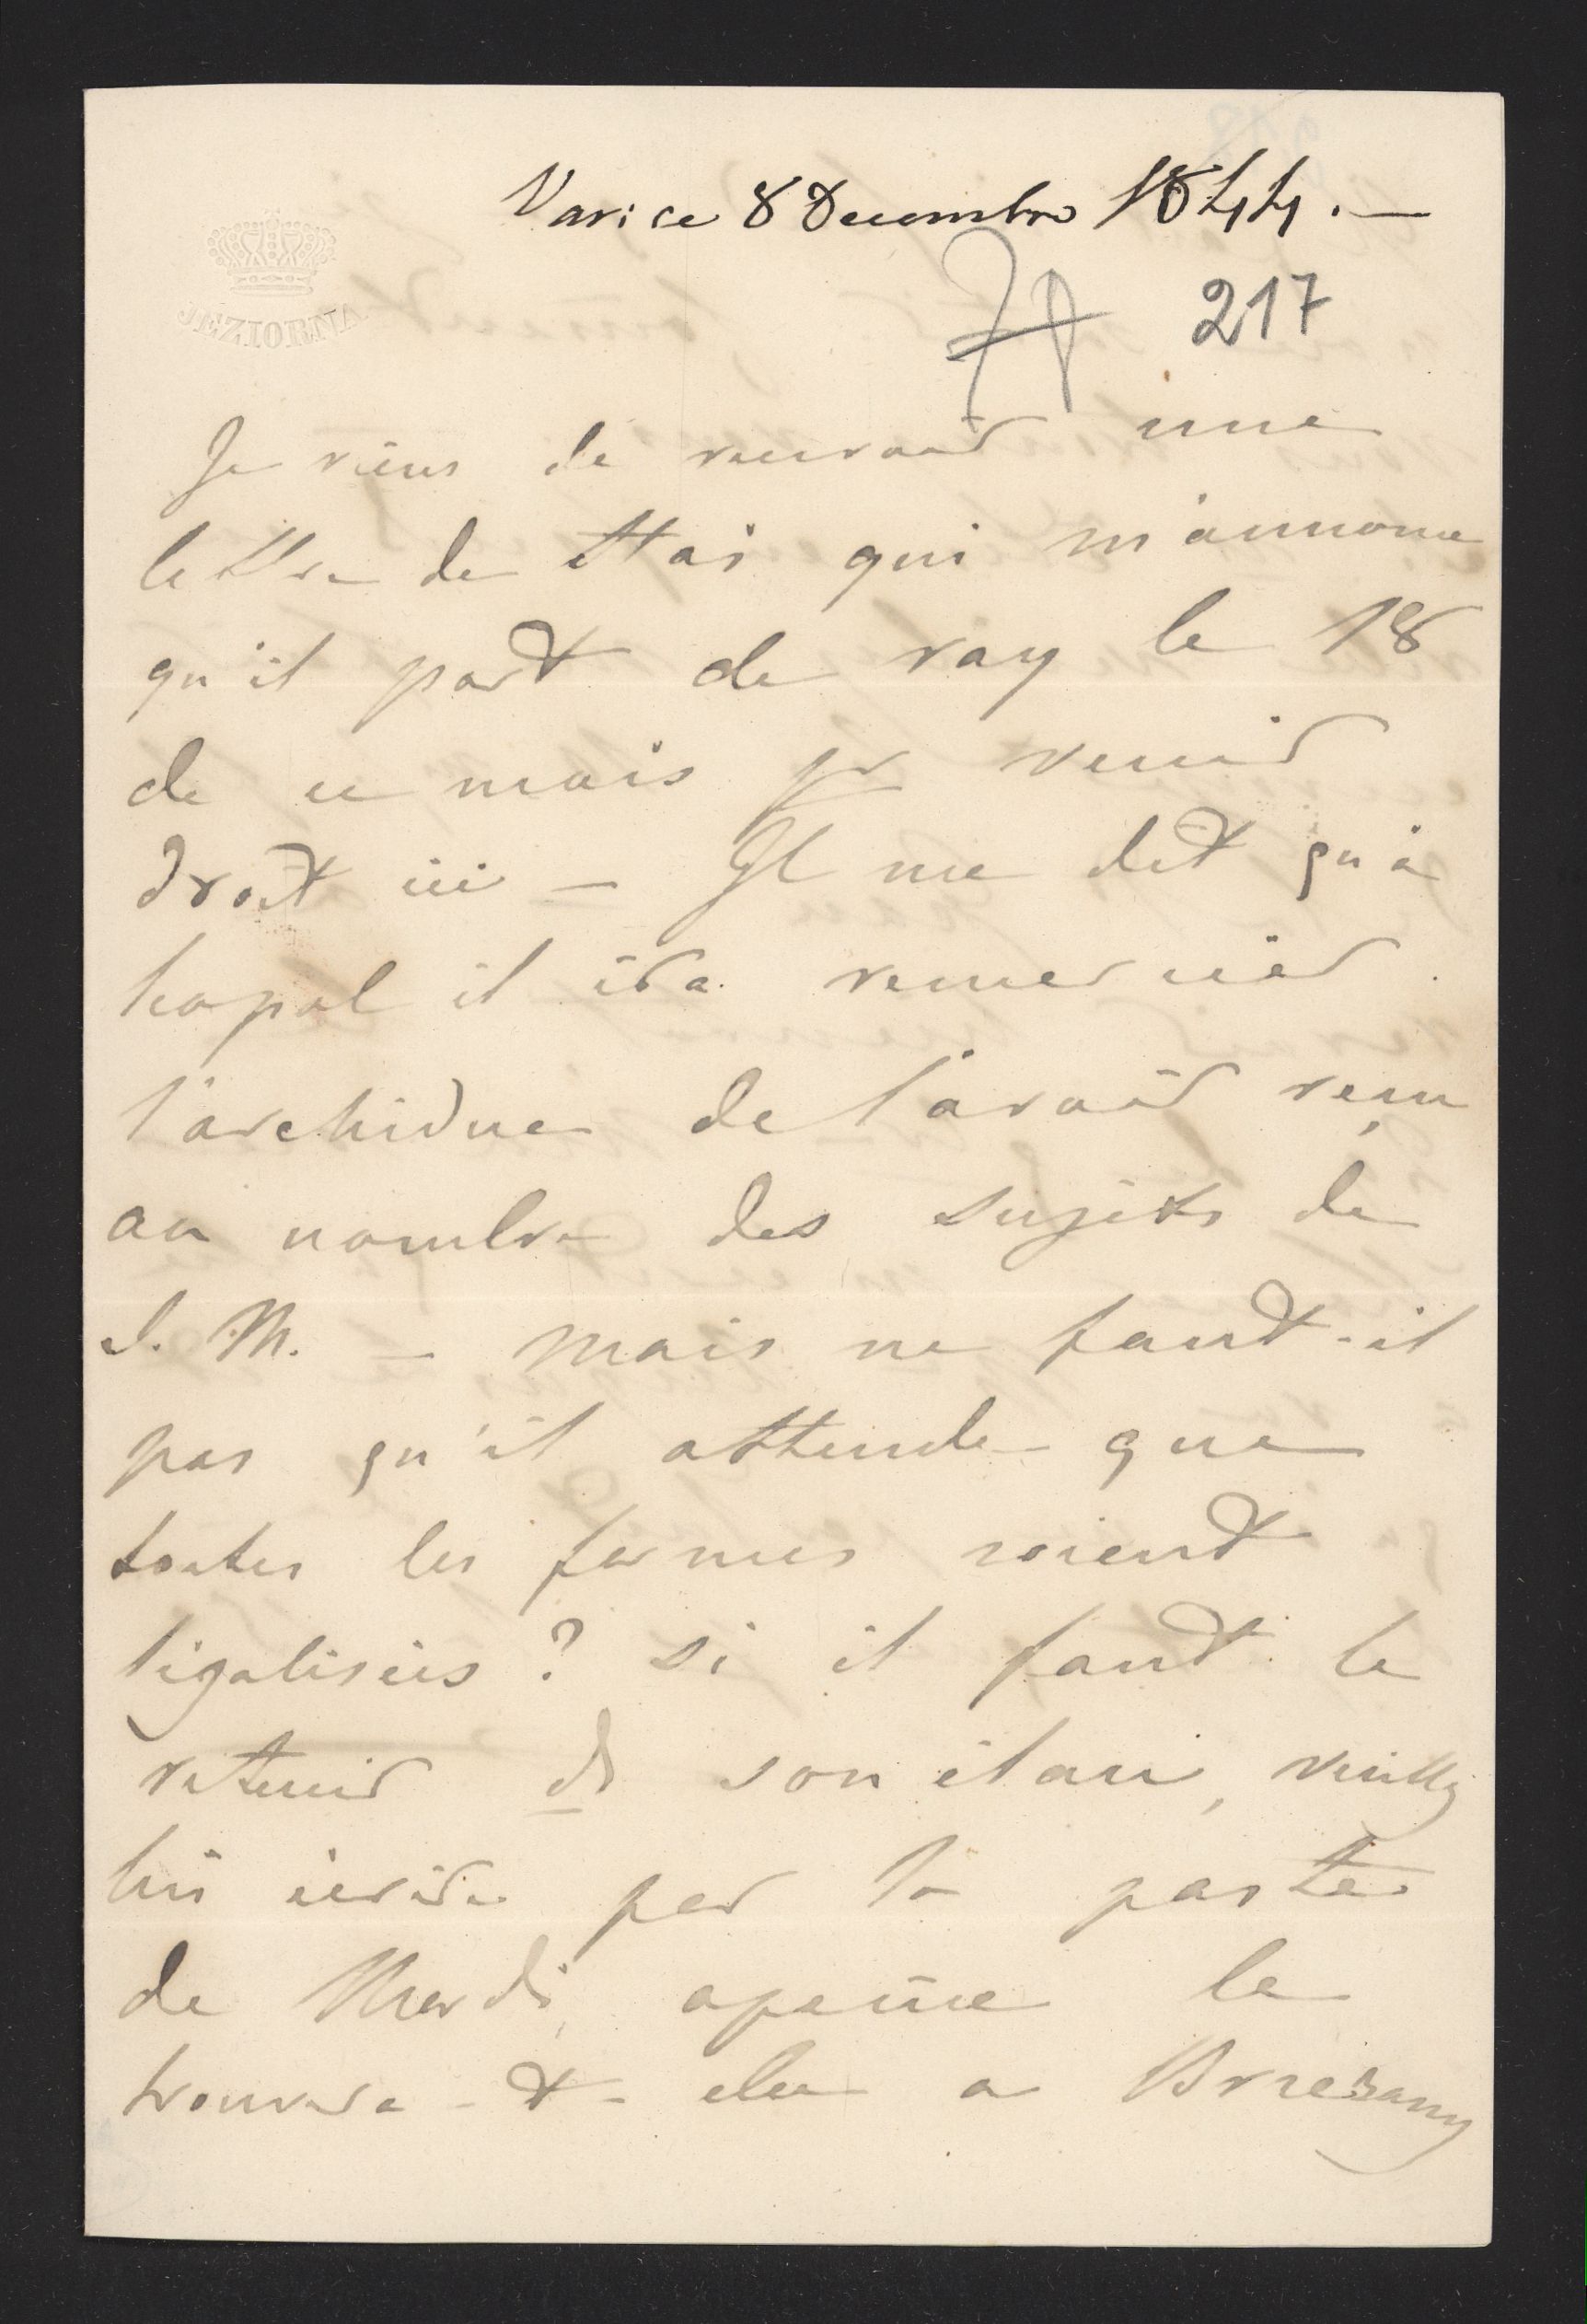 Varsce 8 Decembre 1844. —
217
JEZIORNA
Je viens de recevoir une
lettre de Stas qui m'annonce
qu'il part de ray le 18
de ce mois pr venir
droit ici — Il me dit qu'a
leopol il ira remercier
l'archiduc de l'avoir reçu
au nombre des sujets de
S. M. — Mais ne faudt-il
pas qu'il attende que
toutes les formes soient
légalisées ? Si il faudt le
retenir ds son élan, veuillez
lui écrire par la poste
de Mardi, apeine le
trouvera-t-elle a Brzezany